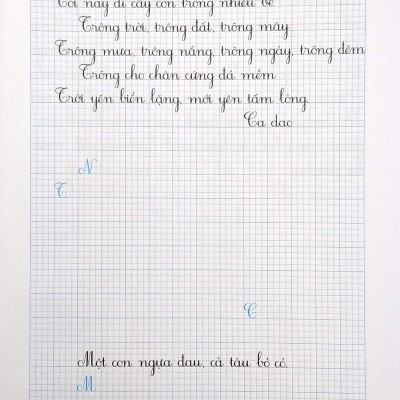 Tôi nay đi cấy còn trông nhiều bề
Trông trời, trông đất, trông mây
Trông mưa, trông nắng, trông ngày, trông đêm
Trông cho chân cứng đá mềm
Trời yên biển lặng, mới yên tấm lòng.
Ca dao
N
T
C
Một con ngựa đau, cả tàu bỏ cỏ.
M